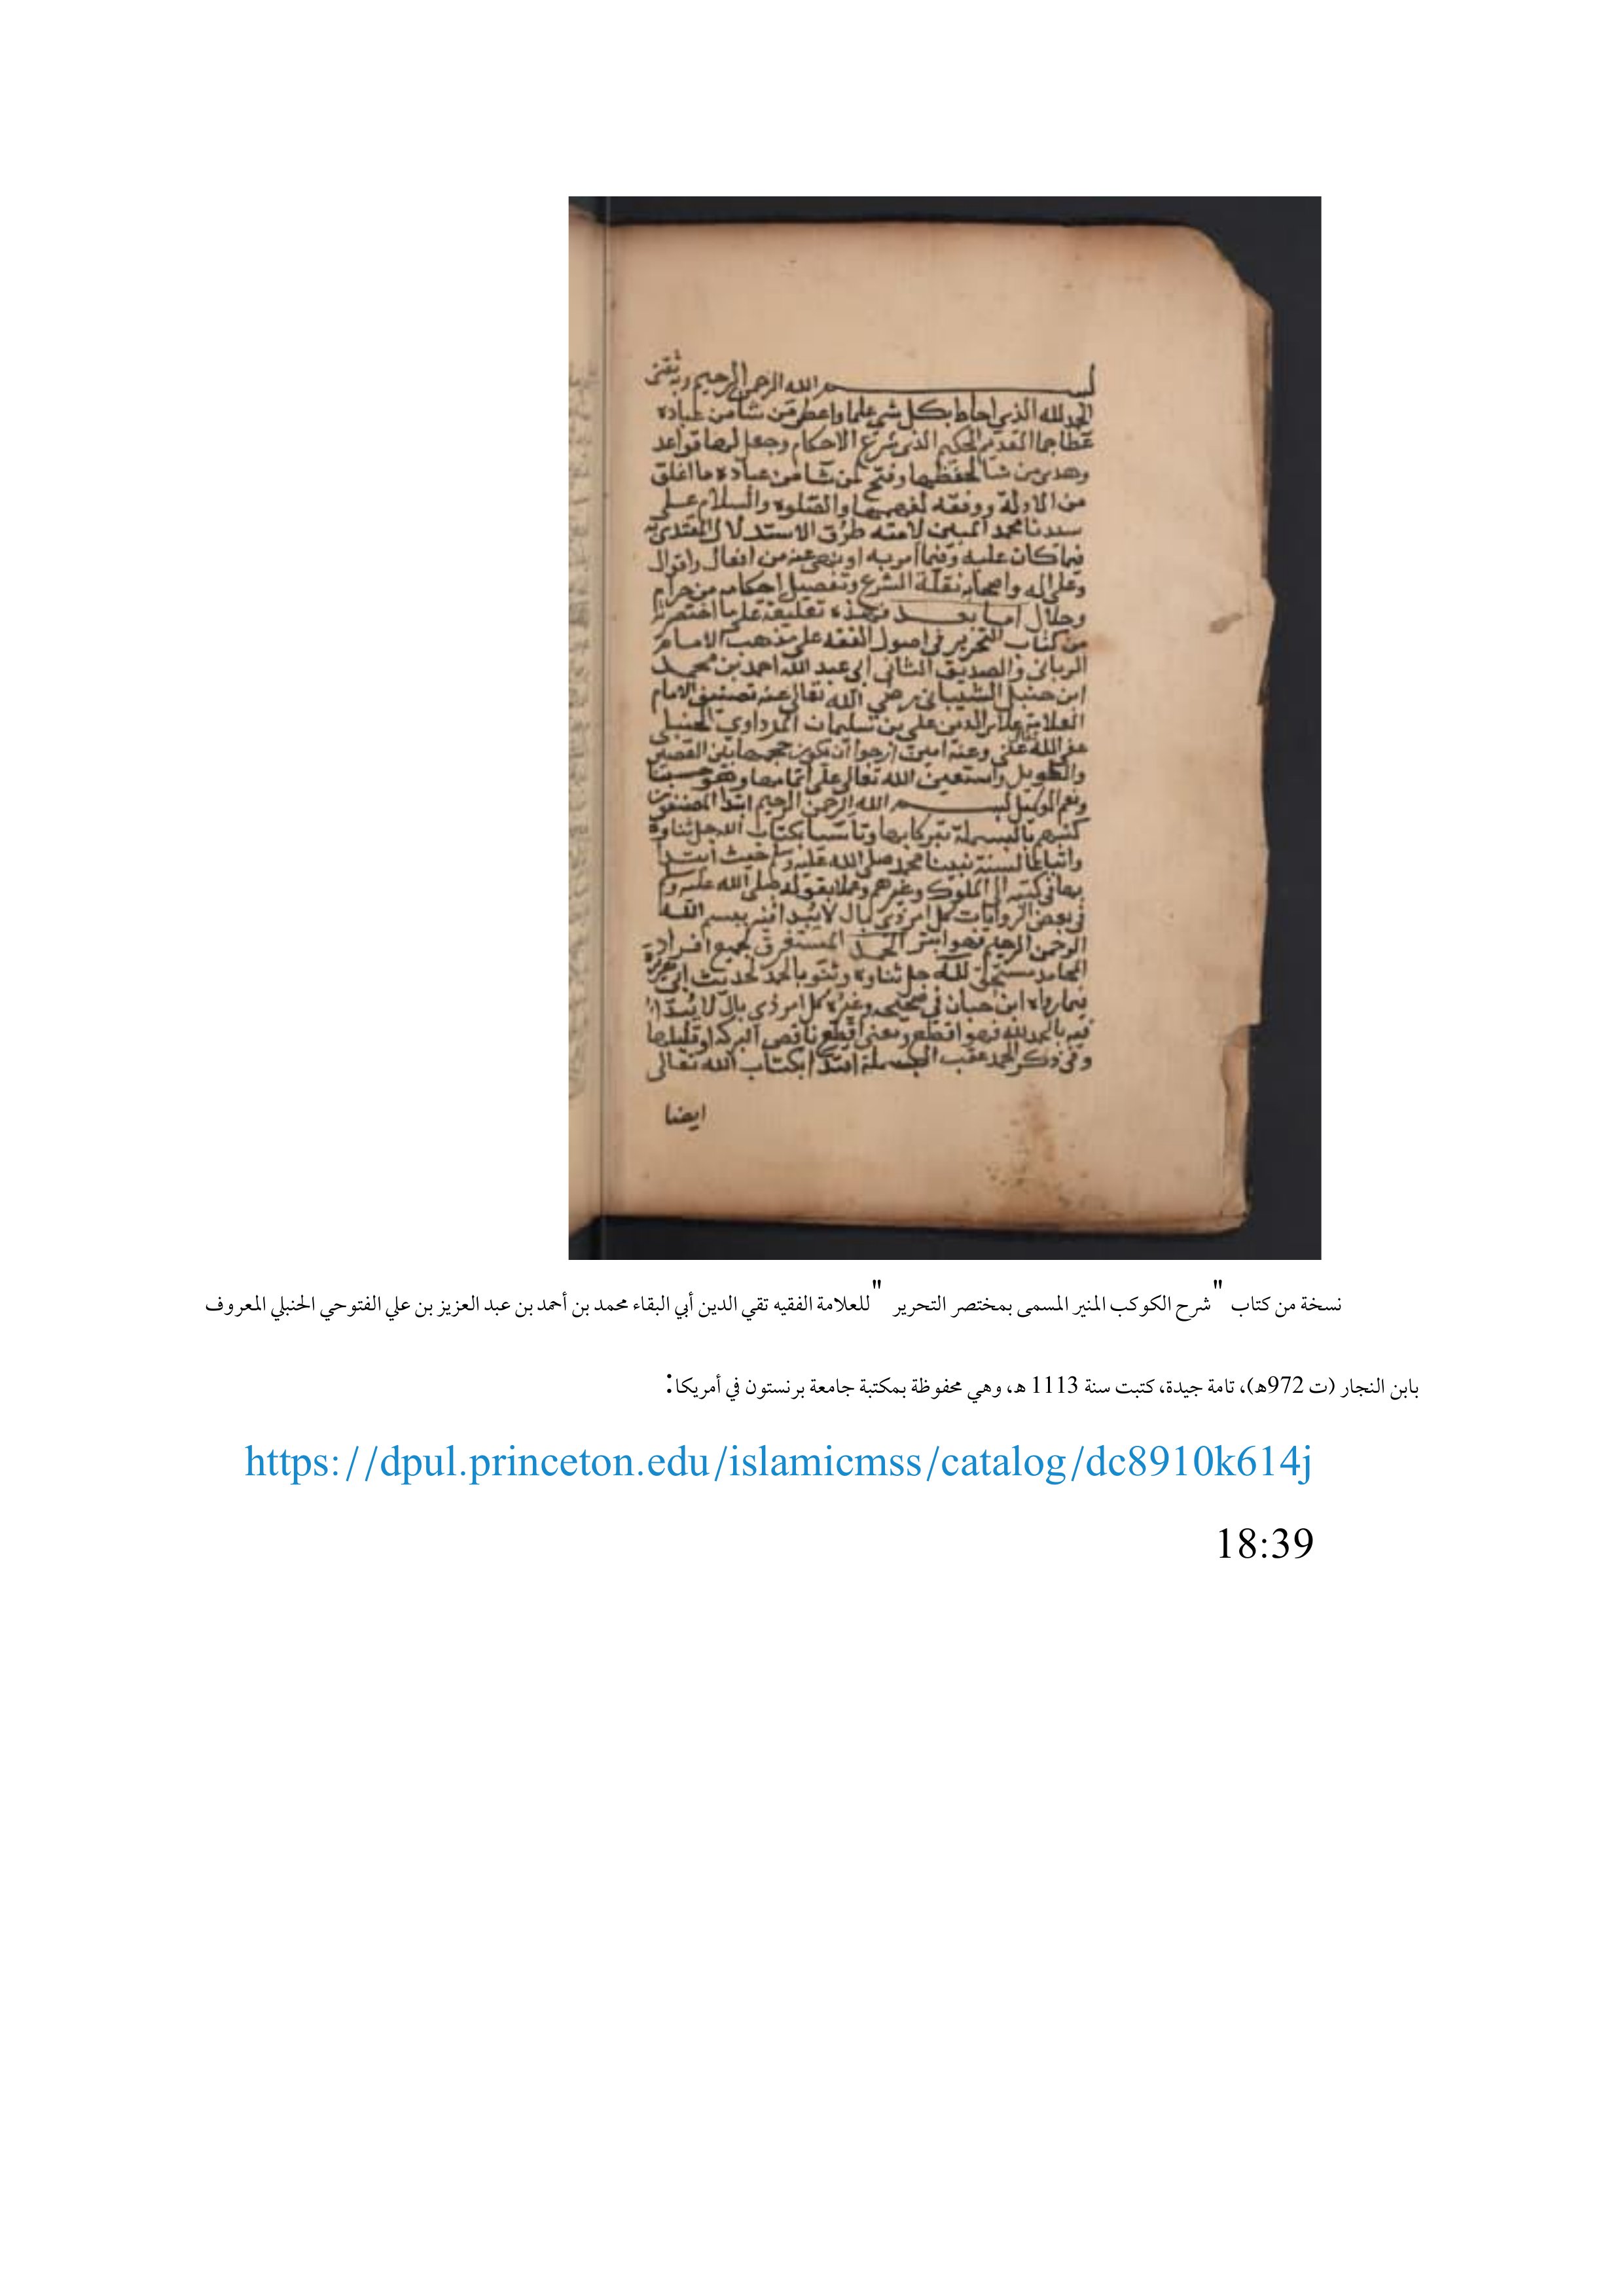 بسم الله الرحمن الرحيم وبه ثقتي
الحمد لله الذي احاط بكل شي علما واعطى من شا من عباده
عطا جما القديم الحكيم الذي شرع الاحكام وجعل لها قواعد
وهدى من شا لحفظها وفتح لمن شا من عباده ما اغلق
من الادلة ووفقه لفهمها والصلوة والسلام على
سيدنا محمد المبين لامته طرق الاستدلال المقتدى به
فيما كان عليه وفيما امر به او نهى عنه من افعال واقوال
وعلى اله واصحابه نقلة الشرع وتفصيل احكامه من حرام
وحلال اما بعد فهذه تعليقة على ما اختصرته
من كتاب التحرير في اصول الفقه على مذهب الامام
الرباني والصديق الثاني ابي عبد الله احمد بن محمد
ابن حنبل الشيباني رضي الله تعالى عنه تصنيف الامام
العلامة علاء الدين علي بن سليمان المرداوي الحنبلي
عفى الله تعالى عني وعنه امين ارجوا ان يكون حجمها بين القصير
والطويل واستعين الله تعالى على اتمامها وهو حسبنا
ونعم الوكيل بسم الله الرحمن الرحيم ابتدا المصنفون
كتبهم بالبسملة تبركا بها وتاسيا بكتاب الله جل ثناوه
واتباعا لسنة نبينا محمد صلى الله عليه وسلم حيث ابتدا
بها في كتبه الى الملوك وغيرهم وعملا بقوله صلى الله عليه وسلم
في بعض الروايات كل امر ذي بال لا يبدا فيه ببسم الله
الرحمن الرحيم فهو ابتر الحمد المستغرق لجميع افراد
المحامد مستحق لله جل ثناوه وثنو بالحمد لحديث ابي هريرة
فيما رواه ابن حبان في صحيحه وغيره كل امر ذي بال لا يبدا
فيه بالحمد لله فهو اقطع ومعنى اقطع ناقص البركة او قليلها
وفي ذكر الحمد عقب البسملة ابكتاب الله تعالى
ايضا
نسخة من كتاب "شرح الكوكب المنير المسمى بمختصر التحرير "للعلامة الفقيه تقي الدين أبي البقاء محمد بن أحمد بن عبد العزيز بن علي الفتوحي الحنبلي المعروف
بابن النجار (ت 972هـ)، تامة جيدة، كتبت سنة 1113 هـ، وهي محفوظة بمكتبة جامعة برنستون في أمريكا:
https://dpul.princeton.edu/islamicmss/catalog/dc8910k614j
18:39